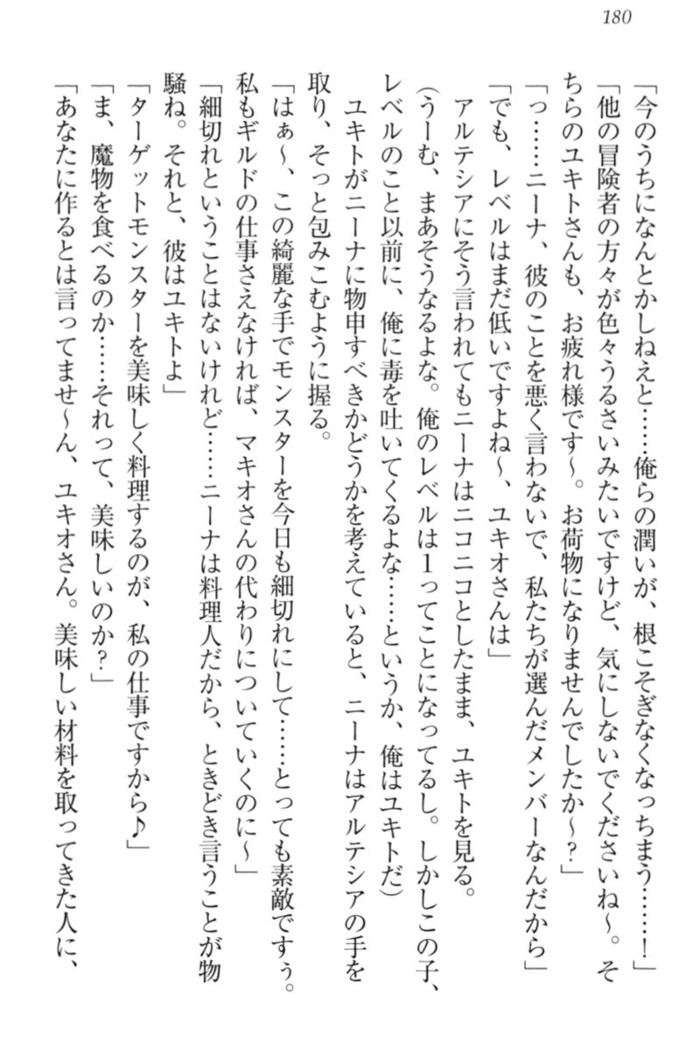 180
「今のうちになんとかしねえと……俺らの潤いが、根こそぎなくなっちまう……！」
「他の冒険者の方々が色々うるさいみたいですけど、気にしないでくださいね～。そ
ちらのユキトさんも、お疲れ様です～。お荷物になりませんでしたか～？」
「っ……ニーナ、彼のことを悪く言わないで、私たちが選んだメンバーなんだから」
「でも、レベルはまだ低いですよね～、ユキオさんは」
アルテシアにそう言われてもニーナはニコニコとしたまま、ユキトを見る。
（うーむ、まあそうなるよな。俺のレベルは１ってことになってるし。しかしこの子、
レベルのこと以前に、俺に毒を吐いてくるよな……というか、俺はユキトだ）
ユキトがニーナに物申すべきかどうかを考えていると、ニーナはアルテシアの手を
取り、そっと包みこむように握る。
「はぁ～、この綺麗な手でモンスターを今日も細切れにして……とっても素敵ですぅ。
私もギルドの仕事さえなければ、マキオさんの代わりについていくのに～」
「細切れということはないけれど……ニーナは料理人だから、ときどき言うことが物
騒ね。それと、彼はユキトよ」
「ターゲットモンスターを美味しく料理するのが、私の仕事ですから♪」
「ま、魔物を食べるのか……それって、美味しいのか？」
「あなたに作るとは言ってませ～ん、ユキオさん。美味しい材料を取ってきた人に、